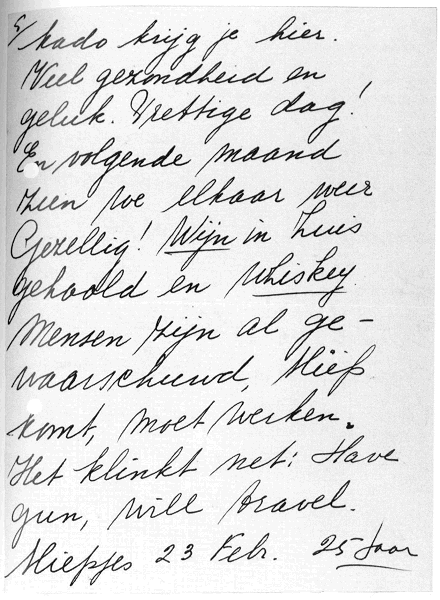 5/
kado krijg je hier.
Veel gezondheid en
geluk. Prettige dag!
En volgende maand
zien we elkaar weer
Gezellig! Wijn in huis
gehaald en whiskey.
Mensen zijn al ge-
waarschuwd, Miep
komt, moet werken.
Het klinkt net: Have
gun, will travel.
Miepjes 23 Febr. 25 Jaar